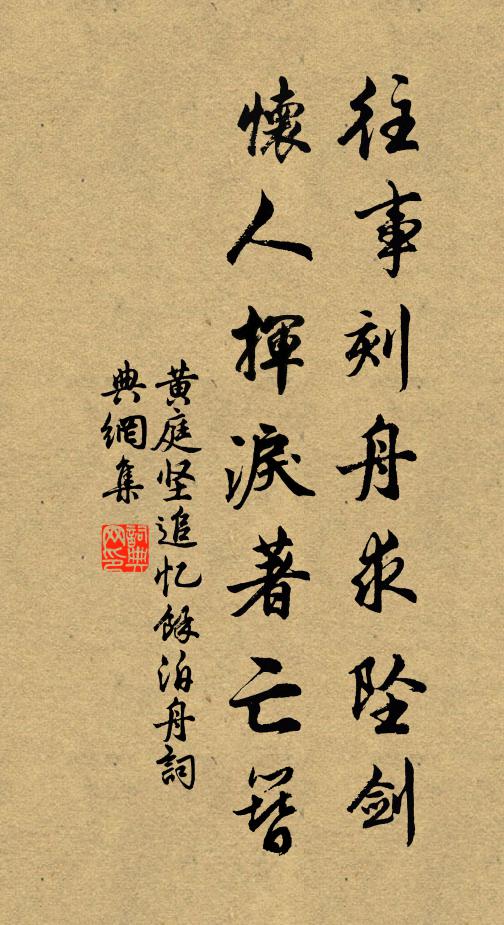 往事刻舟求坠剑
懷人揮淚著亡簪
黄庭坚追忆餘泊舟詞
典網集
詞典网印